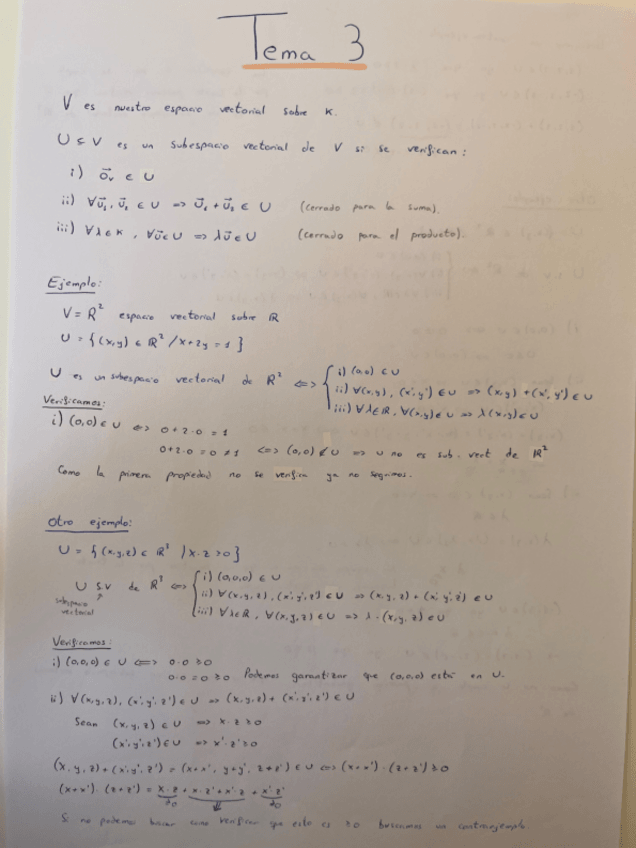 Tema 3
V es nuestro espacio vectorial sobre K.
U ⊆ V es un subespacio vectorial de V si se verifican:
i) 0⃗ᵥ ∈ U
ii) ∀u⃗₁, u⃗₂ ∈ U => u⃗₁ + u⃗₂ ∈ U (cerrado para la suma).
iii) ∀λ∈K, ∀u⃗∈U => λu⃗∈U (cerrado para el producto).
Ejemplo:
V = R² espacio vectorial sobre R
U = {(x,y) ∈ R² / x+2y = 1}
U es un subespacio vectorial de R² <=> { i) (0,0) ∈ U
ii) ∀(x,y), (x',y') ∈ U => (x,y) + (x',y') ∈ U
iii) ∀λ∈R, ∀(x,y)∈U => λ(x,y)∈U
Verificamos:
i) (0,0) ∈ U <=> 0+2·0 = 1
0+2·0 = 0 ≠ 1 <=> (0,0) ∉ U => U no es sub. vect de R²
Como la primera propiedad no se verifica ya no seguimos.
Otro ejemplo:
U = {(x,y,z) ∈ R³ / x·z ≥ 0}
U s.v de R³ <=> { i) (0,0,0) ∈ U
subespacio vectorial
ii) ∀(x,y,z), (x',y',z') ∈ U => (x,y,z) + (x',y',z') ∈ U
iii) ∀λ∈R, ∀(x,y,z) ∈ U => λ·(x,y,z) ∈ U
Verificamos:
i) (0,0,0) ∈ U <=> 0·0 ≥ 0
0·0 = 0 ≥ 0 Podemos garantizar que (0,0,0) está en U.
ii) ∀(x,y,z), (x',y',z') ∈ U => (x,y,z) + (x',y',z') ∈ U
Sean (x,y,z) ∈ U => x·z ≥ 0
(x',y',z') ∈ U => x'·z' ≥ 0
(x,y,z) + (x',y',z') = (x+x', y+y', z+z') ∈ U <=> (x+x')·(z+z') ≥ 0
(x+x')·(z+z') = x·z + x·z' + x'·z + x'·z'
≥0 ≥0
Si no podemos buscar como verificar que esto es ≥0 buscamos un contraejemplo.